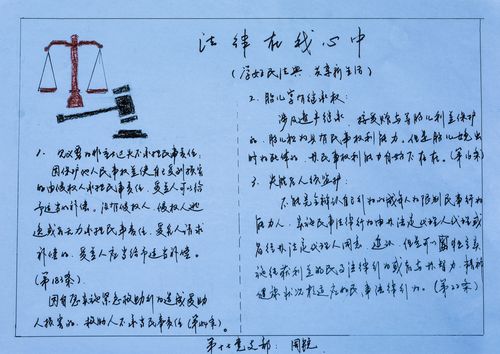 法律在我心中
(学好民法典 共享新生活)
1. 见义勇为非重大过失不承担民事责任:
因保护他人民事权益使自己受到损害
的由侵权人承担民事责任,受益人可以给
予适当的补偿。没有侵权人、侵权人逃
逸或者无力承担民事责任,受害人请求
补偿的,受益人应当给予适当补偿。
(第183条)
因自愿实施紧急救助行为造成受助
人损害的,救助人不承担民事责任(第184条)。
2. 胎儿享有继承权:
涉及遗产继承、接受赠与等胎儿利益保护
的,胎儿视为具有民事权利能力。但是胎儿娩出
时为死体的,其民事权利能力自始不存在。(第16条)
3. 失能老人
不能完全辨认自己行为的成年人为限制民事行为
能力人,实施民事法律行为由其法定代理人代理或
者经其法定代理人同意、追认,但是可以独立实
施纯获利益的民事法律行为或者与其智力、精神
健康状况相适应的民事法律行为。(第22条)
第十七党支部:周